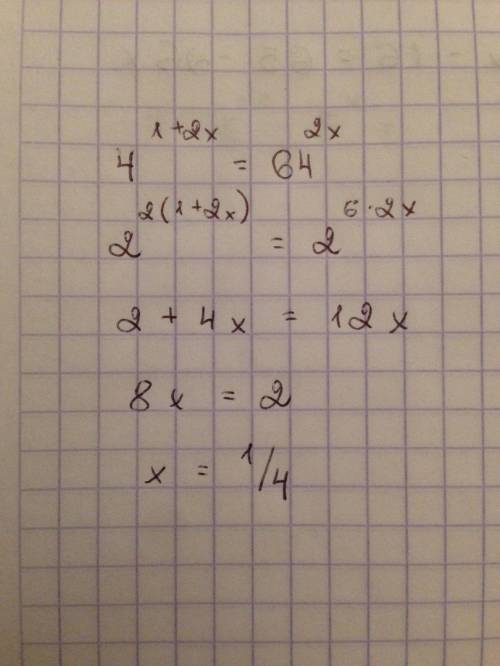 4^{1+2x} = 64^{2x}
2^{2(1+2x)} = 2^{6·2x}
2 + 4x = 12x
8x = 2
x = 1/4